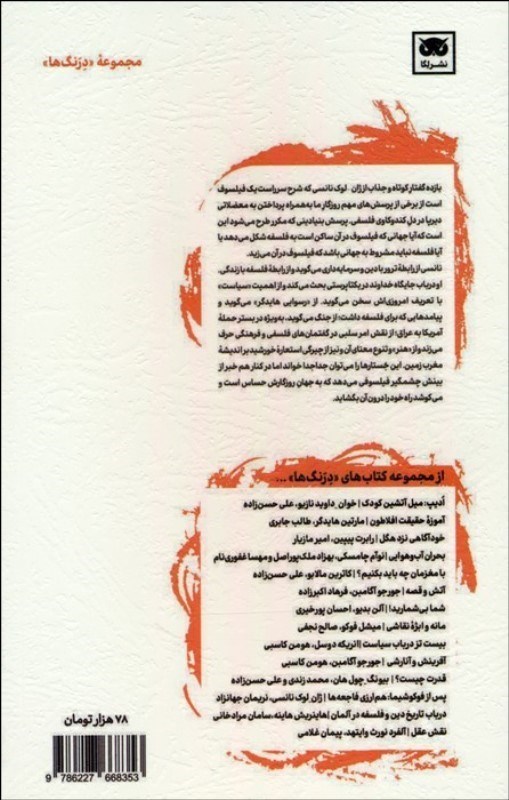 نشر لگا
مجموعهٔ «دِرَنگ‌ها»
یازده گفتار کوتاه و جذاب از ژان - لوک نانسی که شرح سرراست یک فیلسوف
است از برخی از پرسش‌های مهم روزگار ما به‌همراه پرداختن به معضلاتی
دیرپا در دل کندوکاوی فلسفی. پرسش بنیادینی که مکرر طرح می‌شود این
است که آیا جهانی که فیلسوف در آن ساکن است به فلسفه شکل می‌دهد یا
آیا فلسفه نباید مشروط به جهانی باشد که فیلسوف در آن می‌زید.
نانسی از رابطهٔ ترور با دین و سرمایه‌داری می‌گوید و از رابطهٔ فلسفه با زندگی.
او در باب جایگاه خداوند در یکتاپرستی بحث می‌کند و از اهمیت «سیاست»
با تعریف امروزی‌اش سخن می‌گوید. از «رسوایی هایدگر» می‌گوید و
پیامدهایی که برای فلسفه داشت؛ از جنگ می‌گوید، به‌ویژه در بستر حملهٔ
آمریکا به عراق؛ از نقش امر سلبی در گفتمان‌های فلسفی و فرهنگی حرف
می‌زند و از «هنر» و تنوع معنای آن و نیز از چیرگی استعارهٔ خورشید بر اندیشهٔ
مغرب زمین. این جستارها را می‌توان جداجدا خواند اما در کنار هم خبر از
بینش چشمگیر فیلسوفی می‌دهد که به جهانِ روزگارش حساس است و
می‌کوشد راه خود را درون آن بگشاید.
از مجموعه کتاب‌های «دِرَنگ‌ها» ...
اُدیپ: میل آتشین کودک | خوان_داوید نازیو، علی حسن‌زاده
آموزهٔ حقیقت افلاطون | مارتین هایدگر، طالب جابری
خودآگاهی نزد هگل | رابرت پیپین، امیر مازیار
بحران آب‌وهوایی | نوآم چامسکی، بهزاد ملک‌پور اصل و مهسا غفوری‌نام
با مغزمان چه باید بکنیم؟ | کاترین مالابو، علی حسن‌زاده
آتش و قصه | جورجو آگامبن، فرهاد اکبرزاده
شما بی‌شمارید! | آلن بدیو، احسان پورخیری
مانه و ابژهٔ نقاشی | میشل فوکو، صالح نجفی
بیست تز در باب سیاست | انریکه دوسل، هومن کاسبی
آفرینش و آنارشی | جورجو آگامبن، هومن کاسبی
قدرت چیست؟ | بیونگ_چول هان، محمد زندی و علی حسن‌زاده
پس از فوکوشیما: هم‌ارزی فاجعه‌ها | ژان_لوک نانسی، نریمان جهانزاد
در باب تاریخ دین و فلسفه در آلمان | هاینریش هاینه، سامان مرادخانی
نقش عقل | آلفرد نورث وایتهد، پیمان غلامی
۷۸ هزار تومان
9 786227 668353